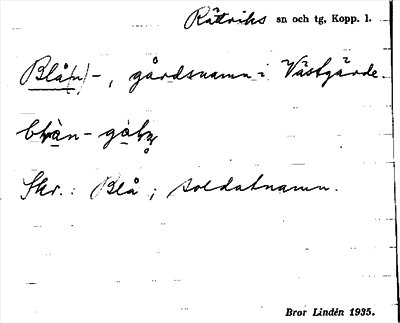 Rättviks sn och tg, Kopp. l.
Blå(n)-, gårdsnamn i Västgärde.
Skr.: Blå ; soldatnamn.
Bror Lindén 1935.